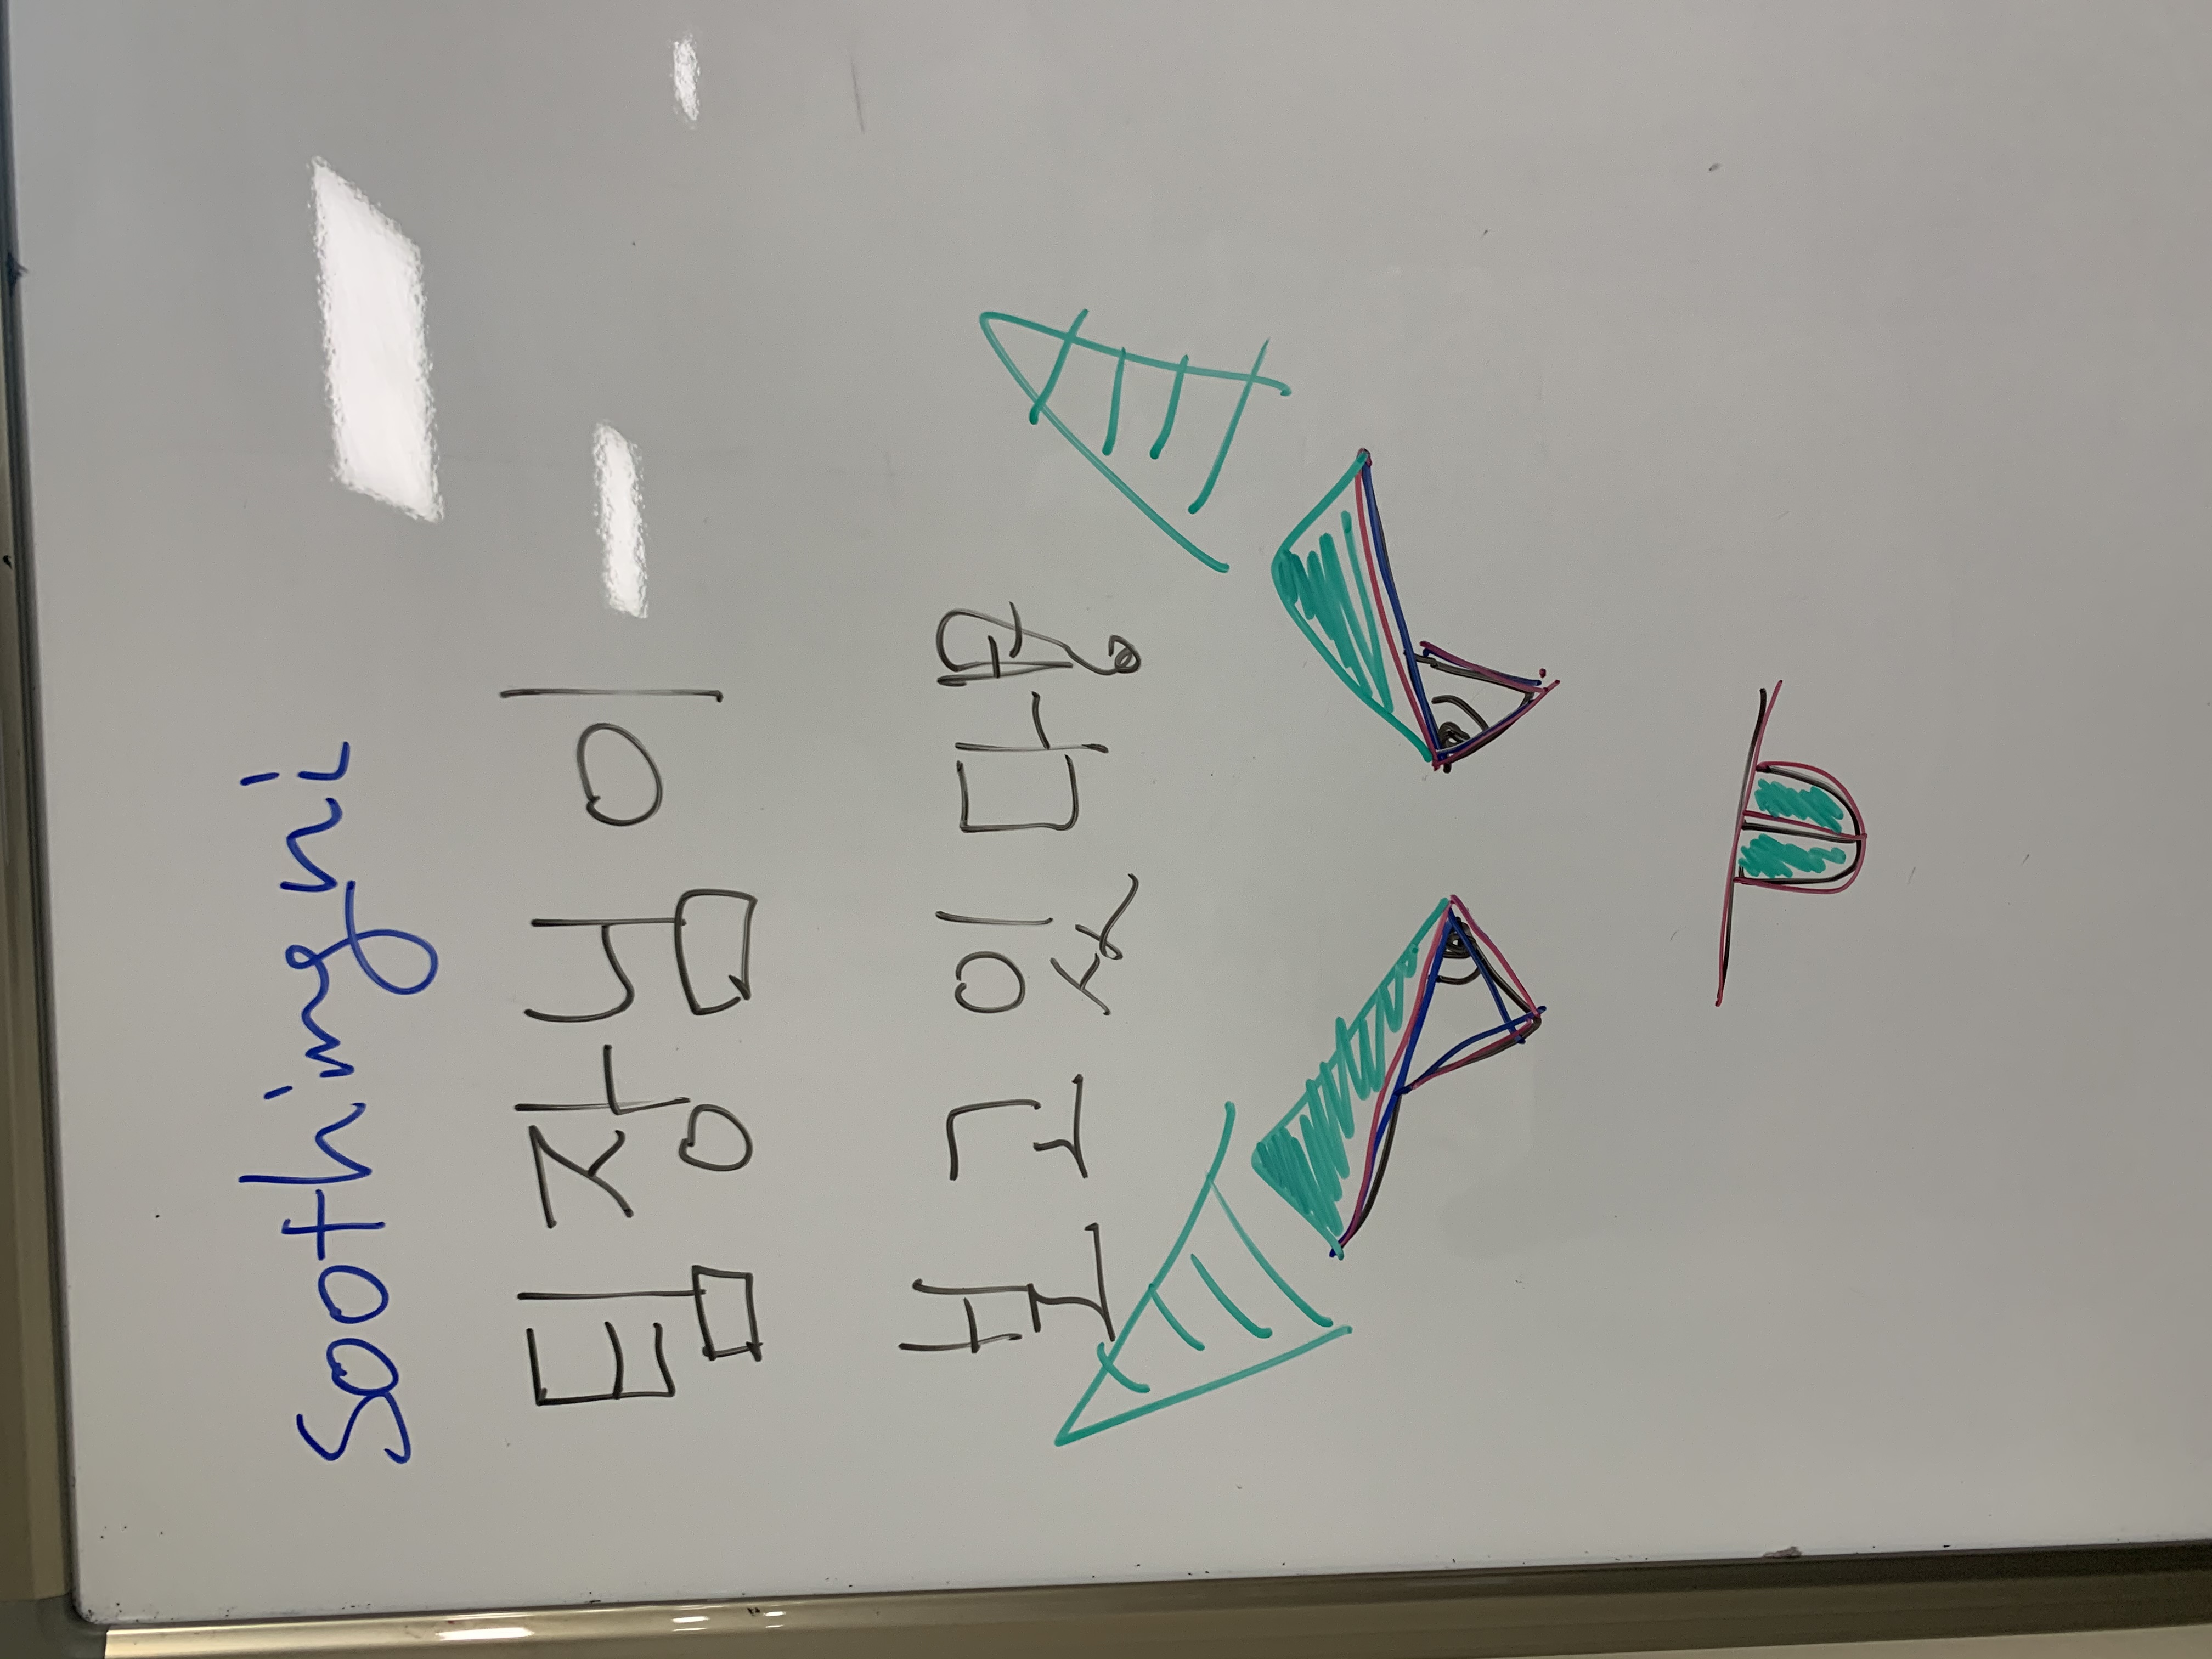 Soothingni
팀장님이
보고있다!